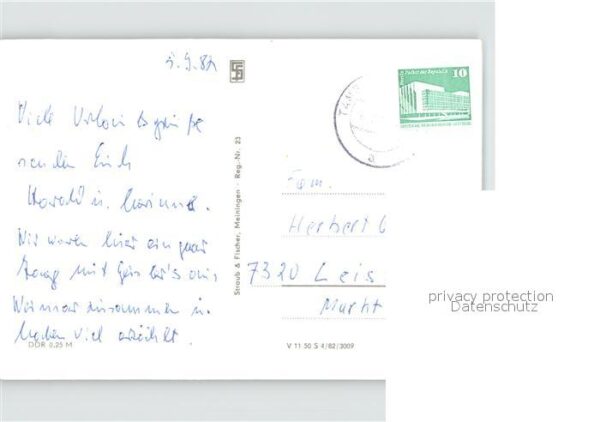 3.9.82
Viele Urlaubsgrüße
senden Euch
Harald u. Corinna.
Wir waren hier ein paar
Tage mit aus
Weimar zusammen u.
haben viel erzählt.
DDR 0,25 M
Straub & Fischer, Meiningen - Reg.-Nr. 23
V 11 50 S 4/82/3009
Berlin, Palast der Republik
10
DEUTSCHE DEMOKRATISCHE REPUBLIK
Fam.
Herbert G
7320 Leis
Markt
privacy protection
Datenschutz